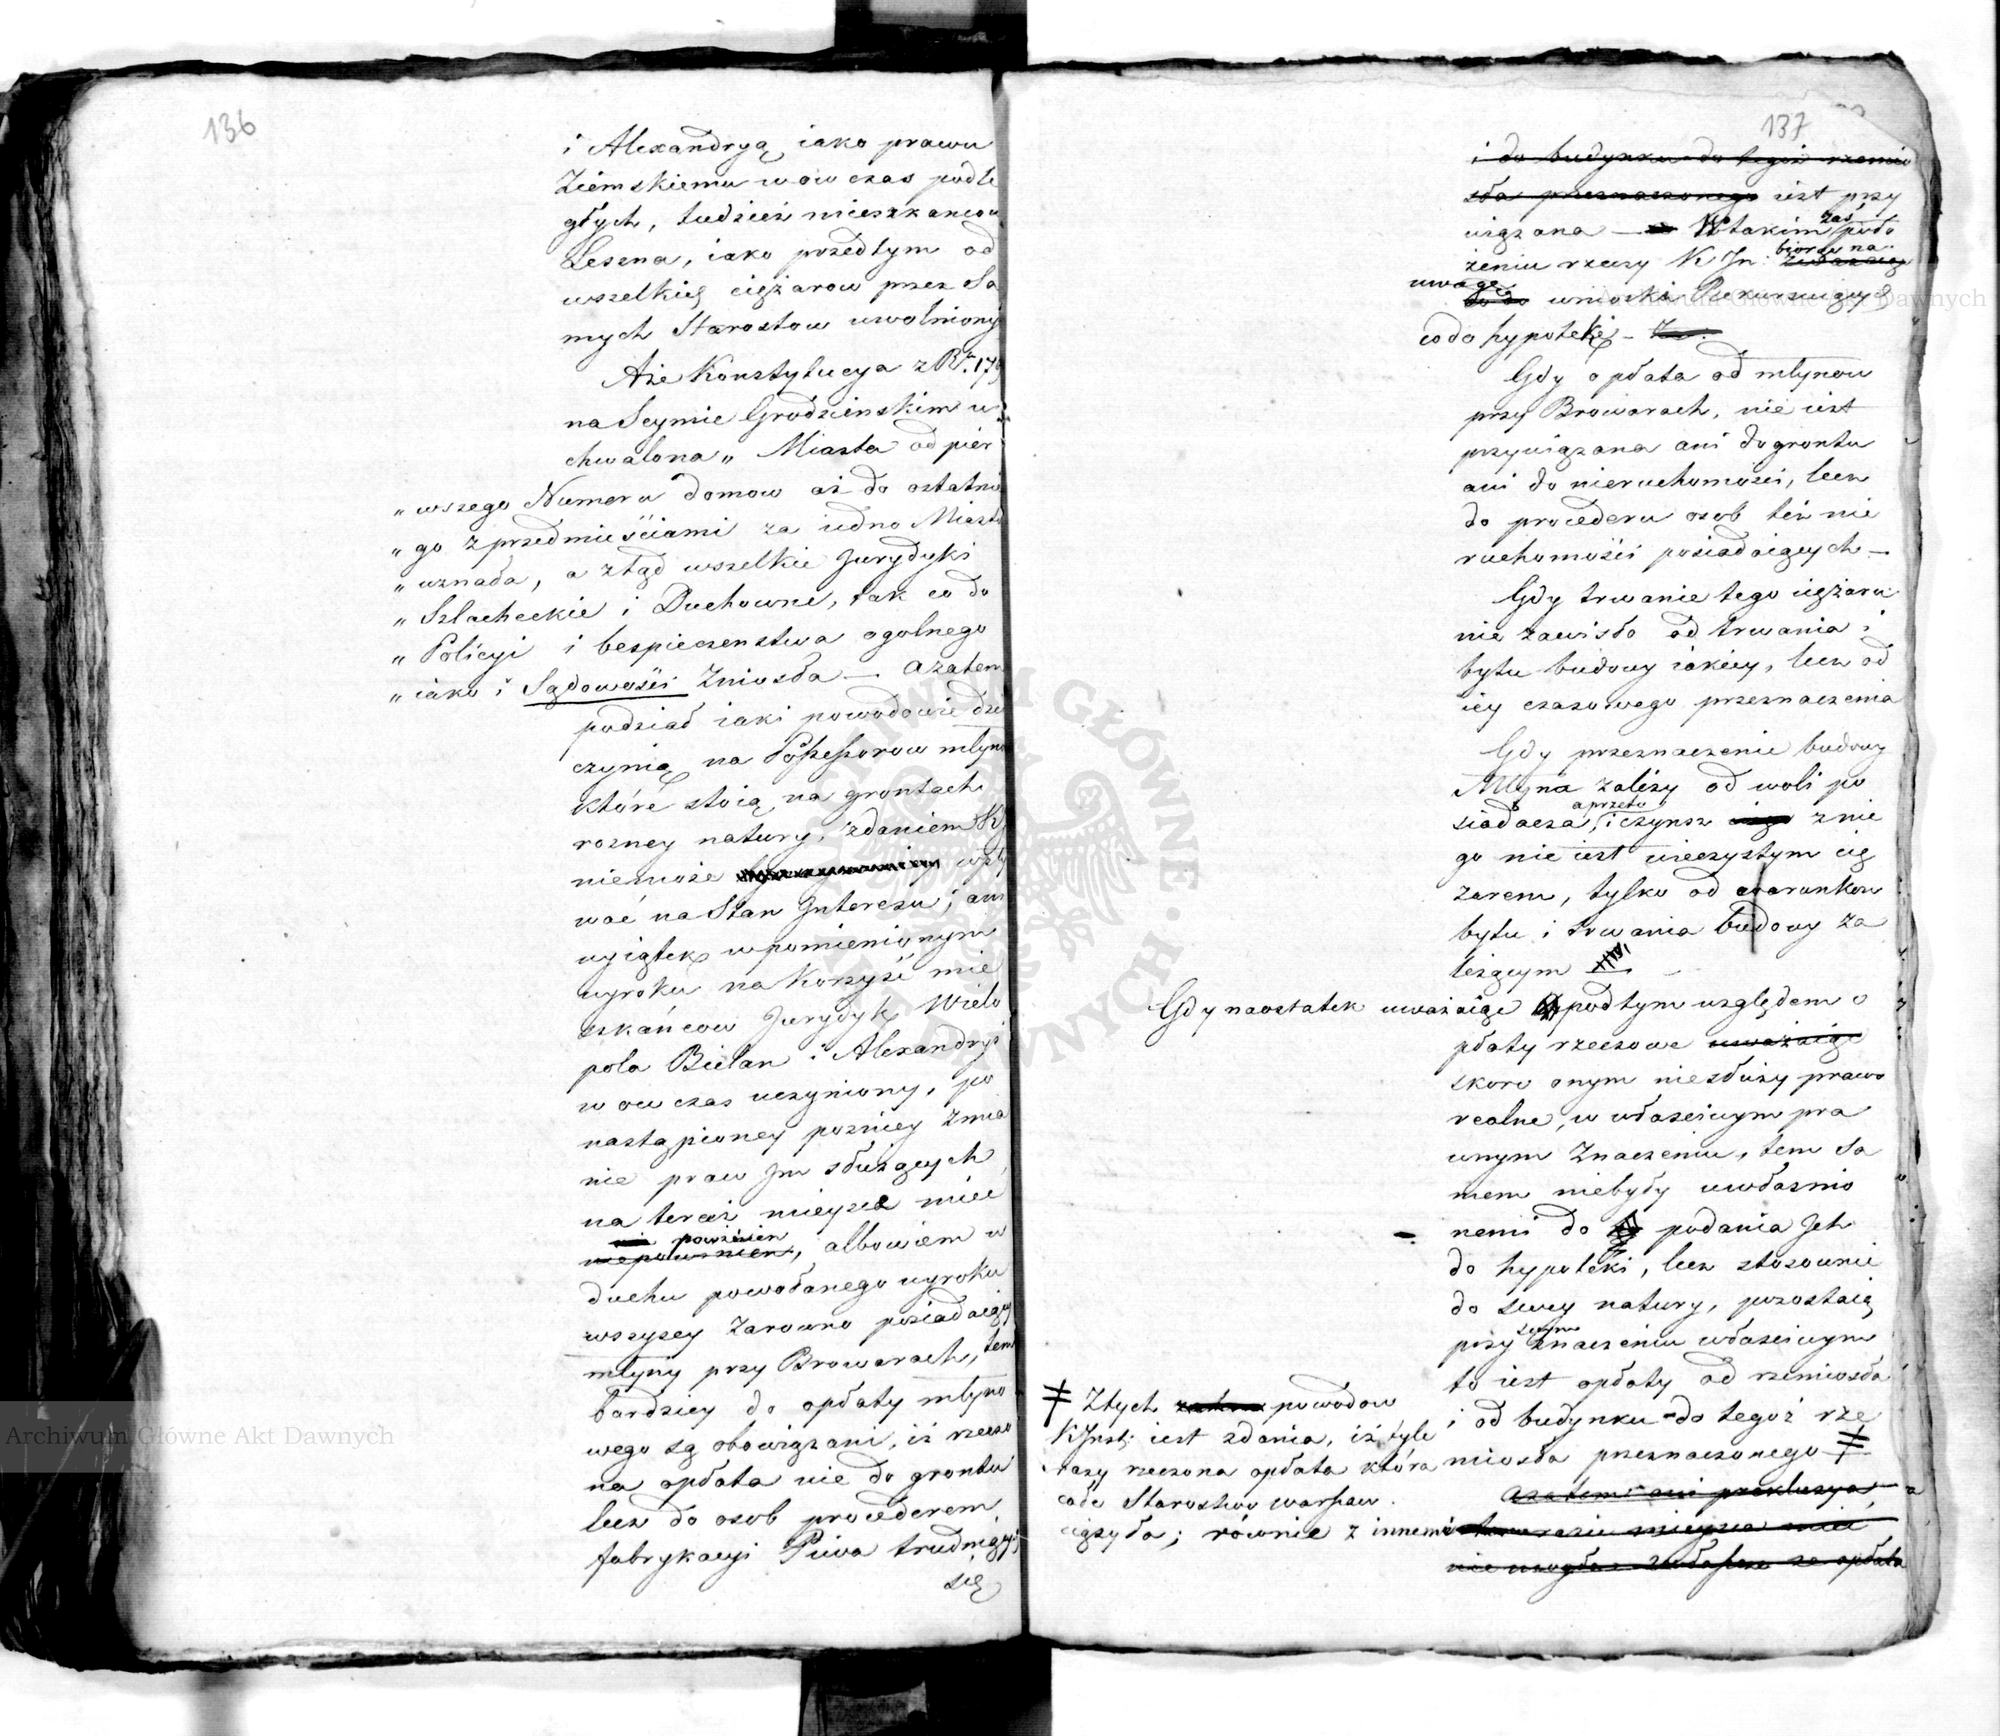 136
i Alexandryą iako prawu
Ziemskiemu wow czas podle
głych, tudzież mieszkancow
Leszna, iako przedtym od
wszelkię ciężarow przez Sa
mych Starostow uwolniony
Aże Konstytucya z R. 179
na Seymie Grodzienskim u
chwalona „ Miasta od pier
„ wszego Numeru domow aż do ostatnie
„ go z przedmieściami za iedno Miasto
„ uznała, a ztąd wszelkie Jurydyki
„ Szlacheckie i Duchowne, tak co do
„ Policyi i bespieczenstwa ogolnego
„ iako i Sądowości Zniosła — a zatem
podział iaki powodowie dzis
czynią na Possessorow mlyno
które stoią na grontach
rozney natury, zdaniem K
niemoże wpły
wać na Stan Interesu; ani
wyiątek wpomienionym
wyroku na Korzyść mie
szkańcow Jurydyk Wielo
pola Bielan i Alexandryi
wow czas uczyniony, po
nastąpioney pozniey Zmia
nie praw Im służących
na teraz mieysca mieć
powinien
niepowinien, albowiem w
duchu powołanego wyroku
wszyscy Zarowno posiadaiący
mlyny przy Browarach, tem
bardziey do opłaty mlyno
wego są obowiązani, iż rzeczo
na opłata nie do grontu
lecz do osob procederem
fabrykacyi Piwa trudniący
się
137
i do budynku do tegoż rzemio
sła przeznaczonego iest przy
wiązana — W takim zas poło
żeniu rzeczy K Jn: biorąc na
uwagę wnioski Rekursuiących
co do hypoteki —
Gdy opłata od mlynow
przy Browarach, nie iest
przywiązana ani do grontu
ani do nieruchomości, lecz
do procederu osob też nie
ruchomości posiadaiących —
Gdy trwanie tego ciężaru
nie zawisło od trwania i
bytu budowy iakiey, lecz od
iey czasowego przeznaczenia
Gdy przeznaczenie budowy
Mlyna zależy od woli po
siadacza, a przeto i czynsz z nie
go nie iest wieczystym cię
żarem, tylko od warunkow
bytu i trwania budowy za
leżącym
Gdy naostatek uważaiąc pod tym względem o
płaty rzeczowe uważaiąc
skoro onym niesłuży prawo
realne, w właściwym pra
wnym Znaczeniu, tem sa
mem niebyły uwłaśnio
nemi do podania Ich
do hypoteki, lecz stosownie
do swey natury, pozostaią
przy swym znaczeniu właściwym
to iest opłaty od rzemiosła
i od budynku do tegoż rze
miosła przeznaczonego ‡
a zatem ani prekluzya
w tem razie mieysca mieć
nie mogła zwłaszcza że opłata
‡ Ztych zatem powodow
K Inst: iest zdania, iż tyle
razy rzeczona opłata która
całe Starostwo warszaw.
ciążyła; równie z innemi